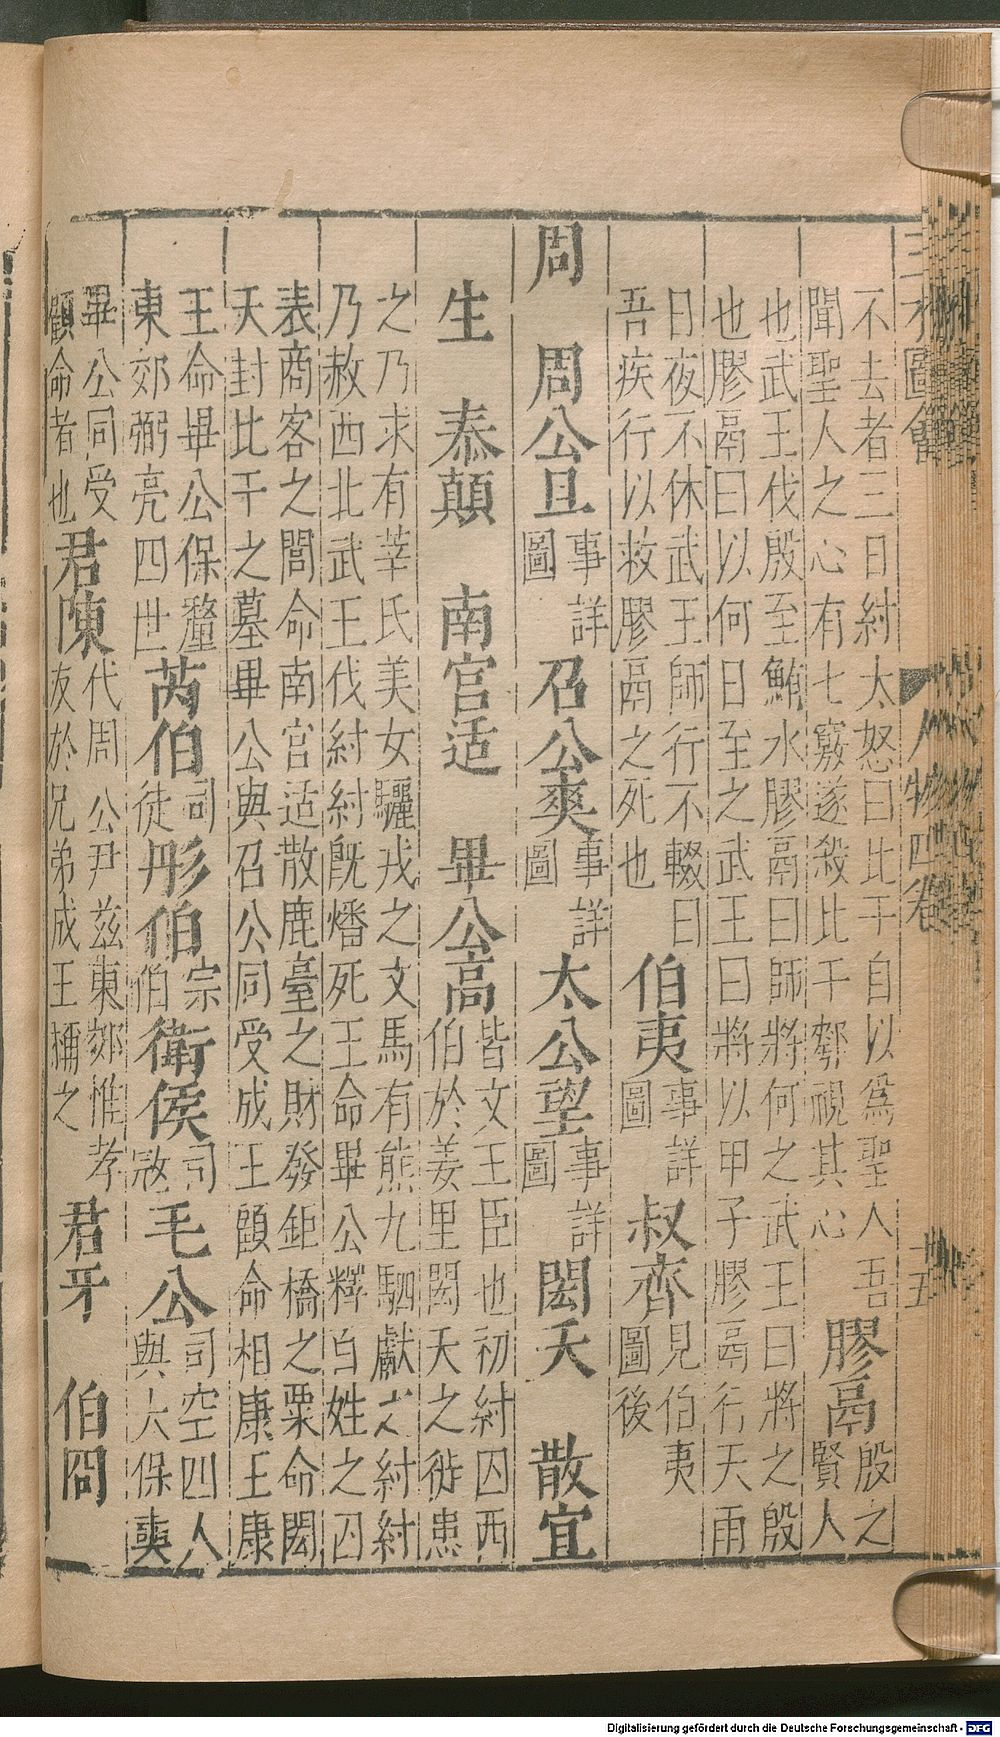 三才圖會 人物四卷 十五
不去者三日紂太怒曰比干自以為聖人吾
聞聖人之心有七竅遂殺比干刳視其心
膠鬲
殷之
賢人
也武王伐殷至鮪水膠鬲曰師將何之武王曰將之殷
也膠鬲曰以何日至之武王曰將以甲子膠鬲行天雨
日夜不休武王師行不輟曰
吾疾行以救膠鬲之死也
伯夷
事詳
圖
叔齊
見伯夷
圖後
周 周公旦
事詳
圖
召公奭
事詳
圖
太公望
事詳
圖
閎夭 散宜
生 泰顛 南宮适 畢公高
皆文王臣也初紂囚西
伯於姜里閎夭之徙患
之乃求有莘氏美女驪戎之文馬有熊九駟獻之紂紂
乃赦西北武王伐紂紂既燔死王命畢公釋百姓之囚
表商客之閭命南宮适散鹿臺之財發鉅橋之粟命閎
夭封比干之墓畢公與召公同受成王顧命相康王康
王命畢公保釐
東郊弼亮四世
芮伯
司
徒
彤伯
宗
伯
衛侯
司
寇
毛公
司空四人
與大保奭
畢公同受
顧命者也
君陳
代周公尹茲東郊惟孝
友於兄弟成王穪之
君牙 伯冏
Digitalisierung gefördert durch die Deutsche Forschungsgemeinschaft - DFG